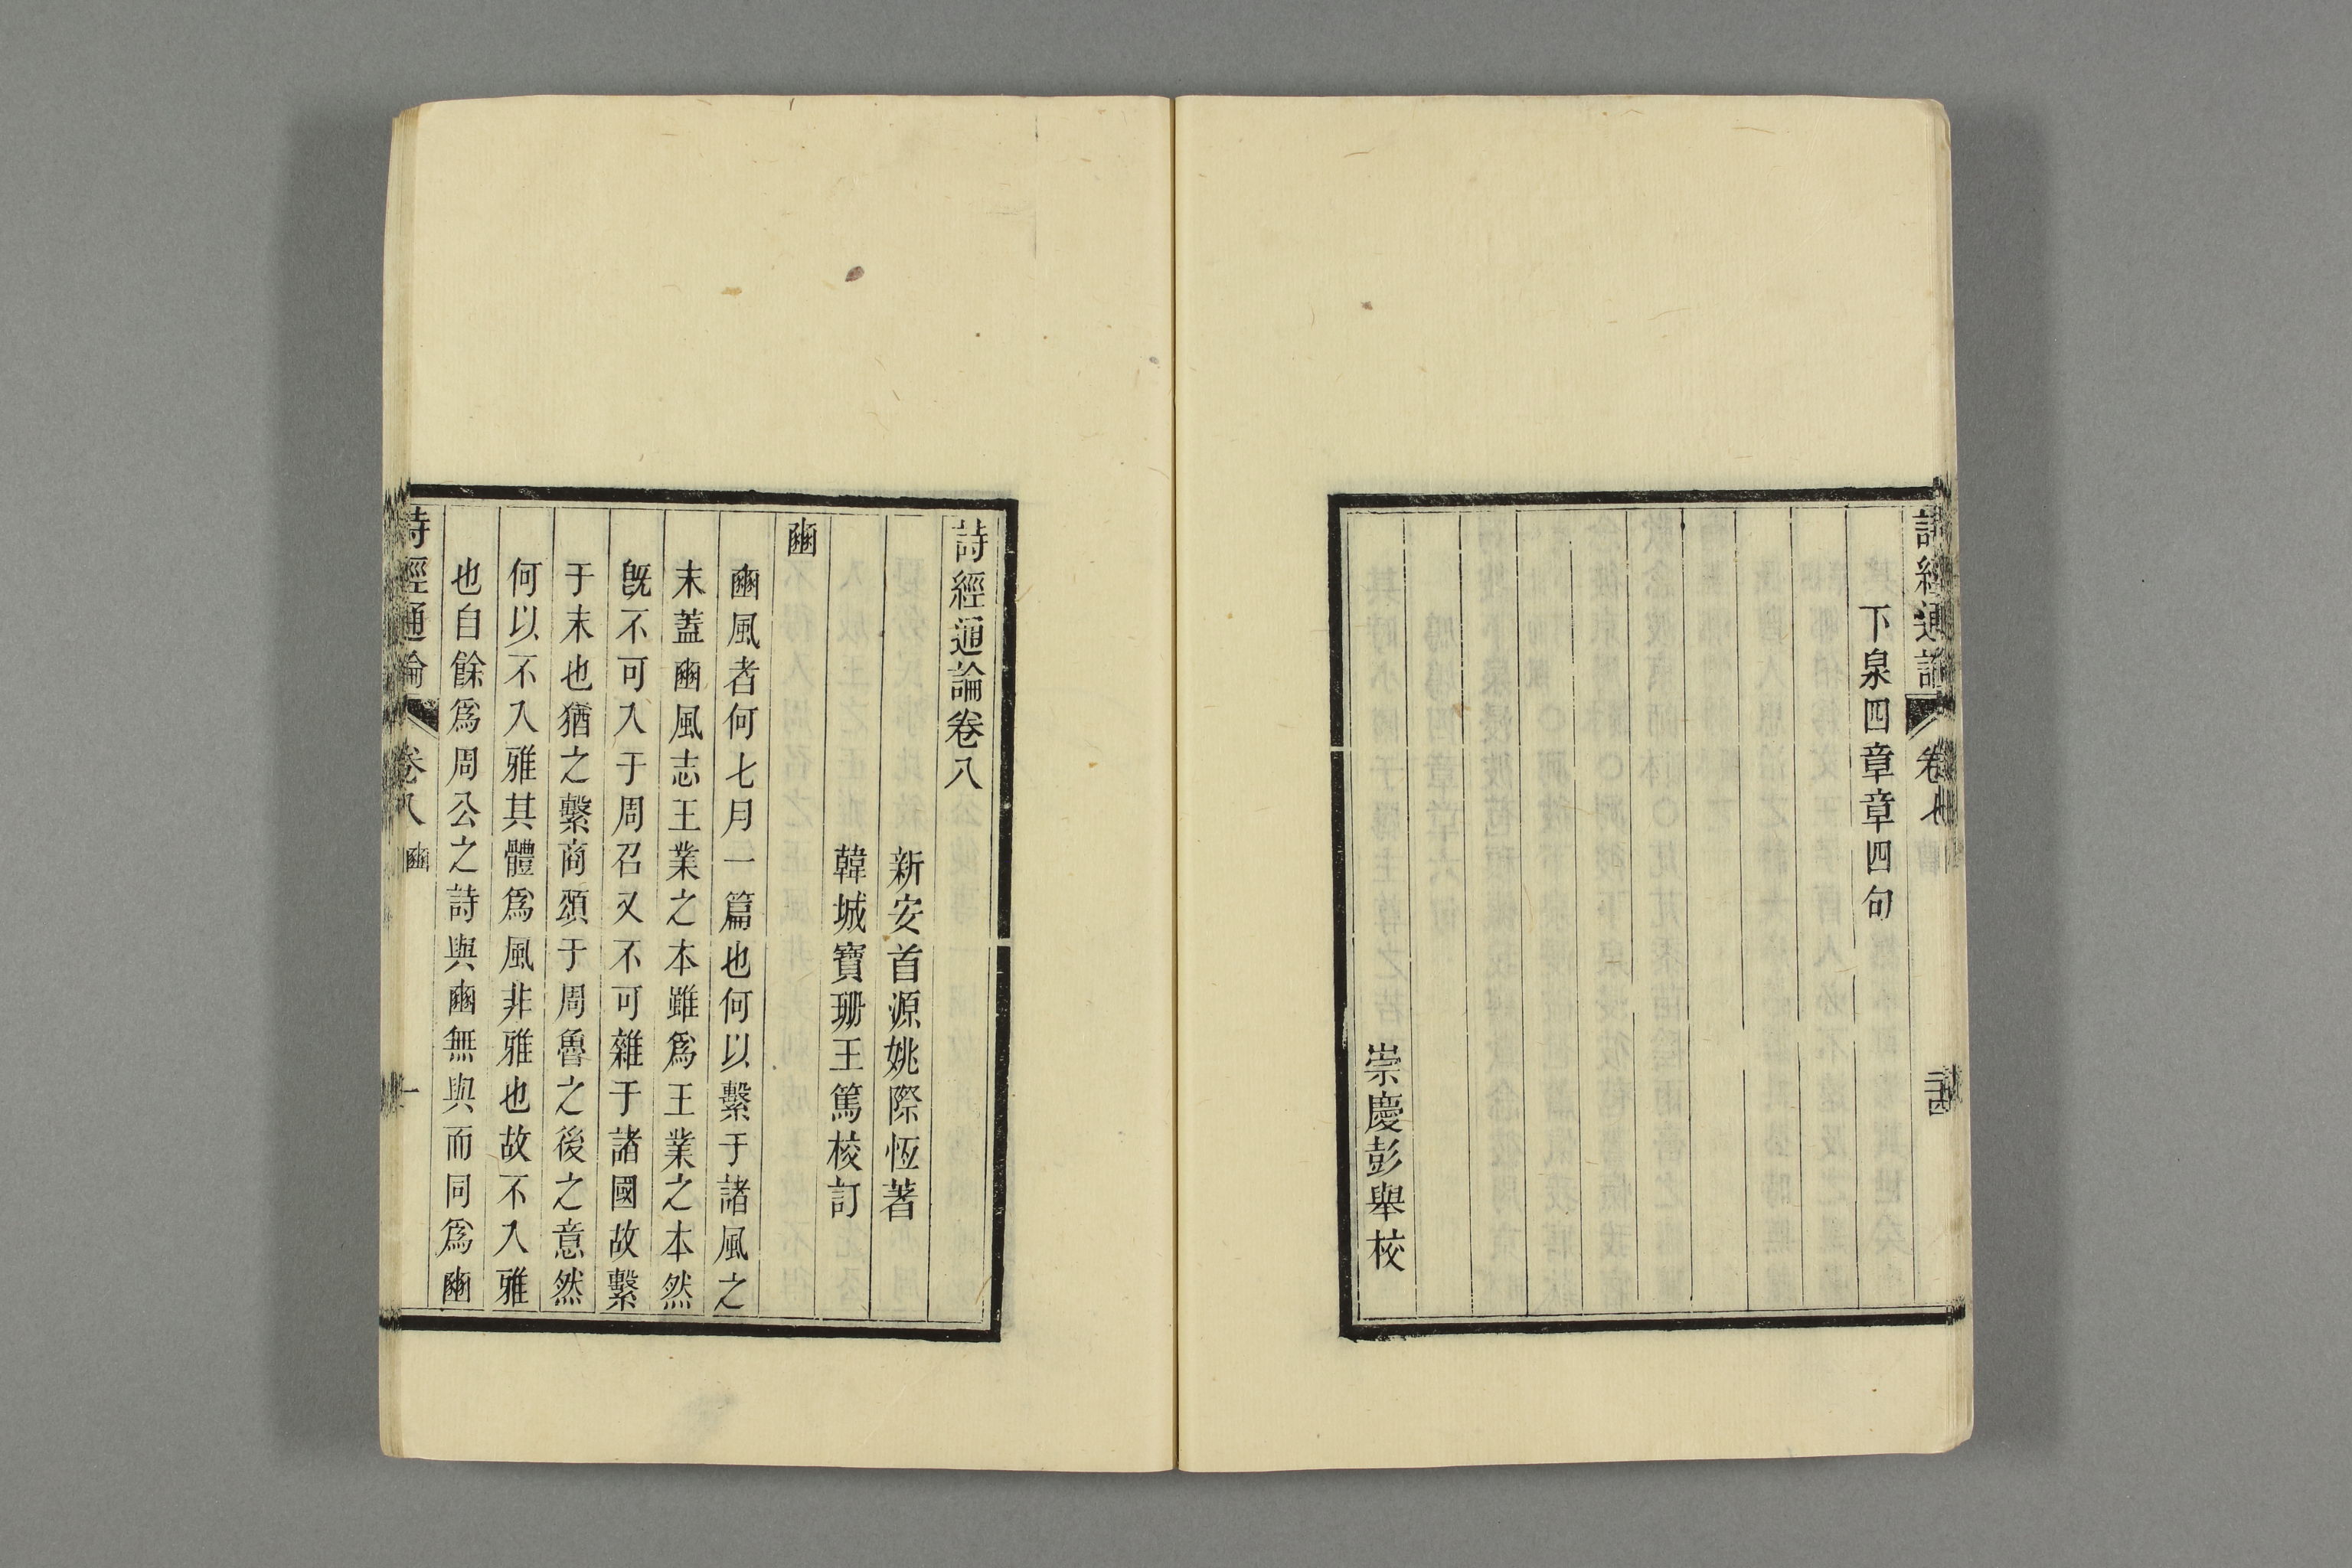 詩經通論
卷七
下泉四章章四句
崇慶彭舉校
詩經通論卷八
新安首源姚際恆著
韓城寶珊王篤校訂
豳
豳風者何七月一篇也何以繫于諸風之
末蓋豳風志王業之本雖爲王業之本然
旣不可入于周召又不可雜于諸國故繫
于末也猶之繫商頌于周魯之後之意然
何以不入雅其體爲風非雅也故不入雅
也自餘爲周公之詩與豳無與而同爲豳
詩經通論
卷八
豳
一